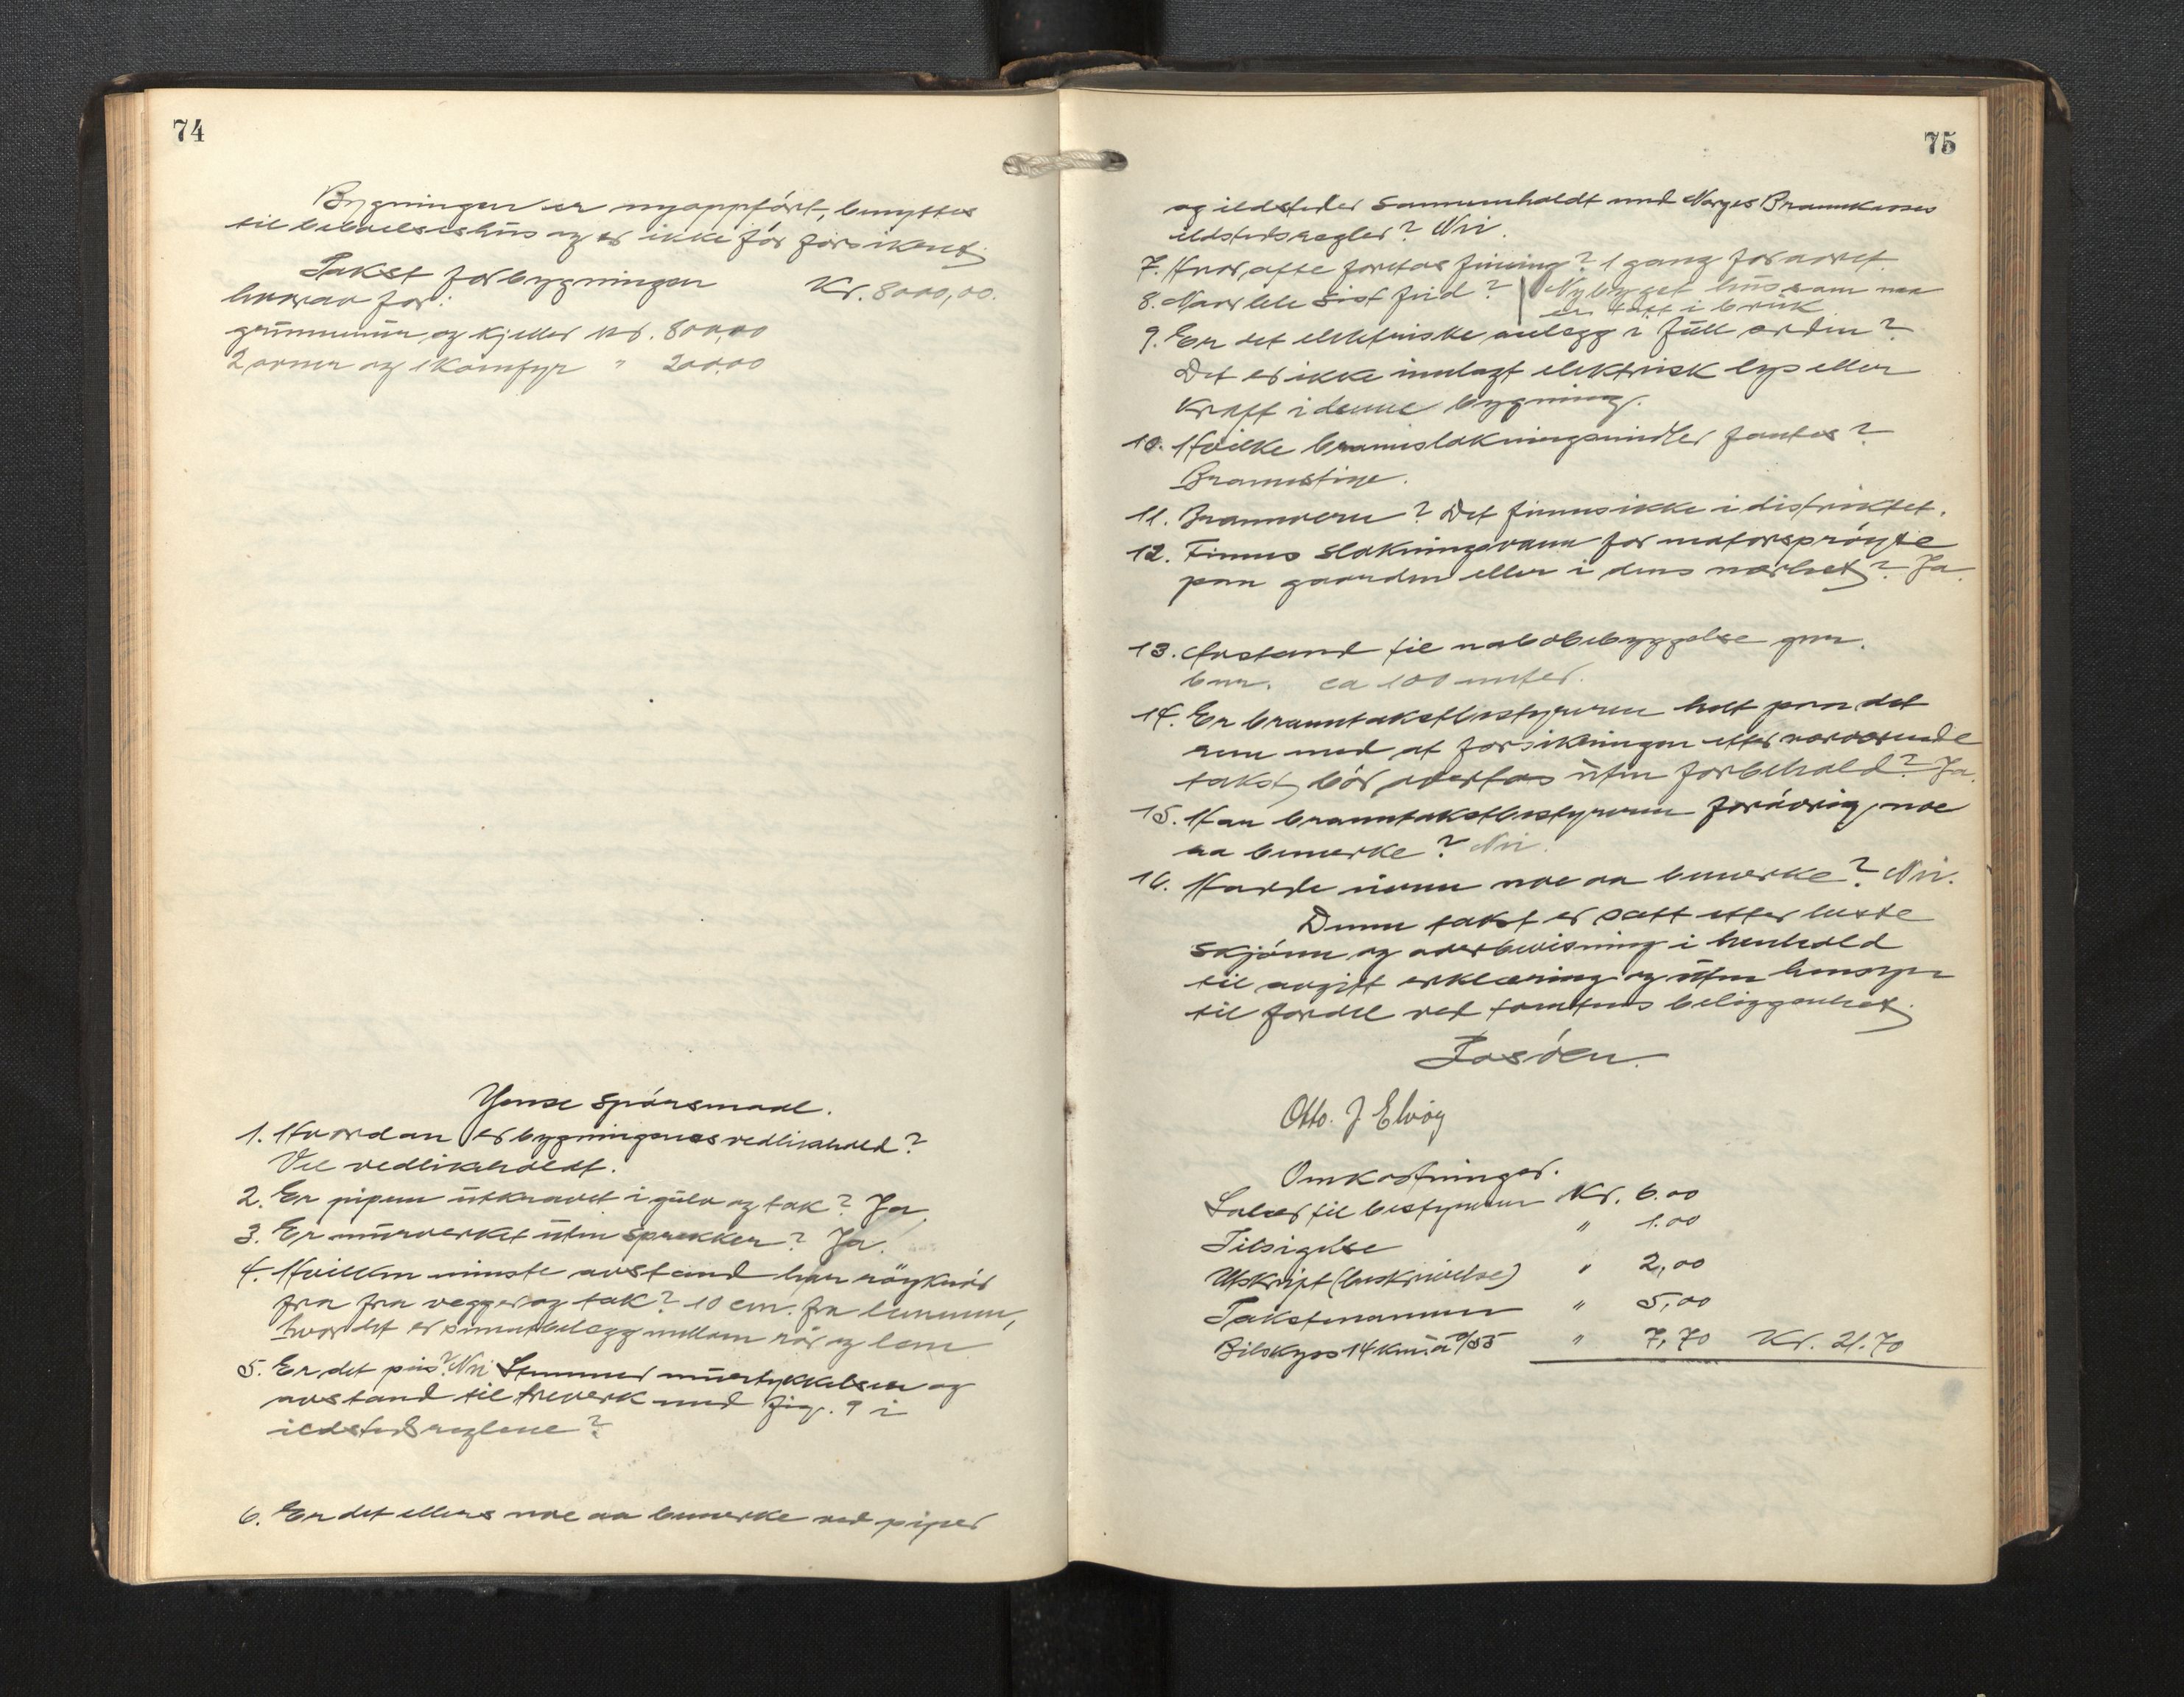 74
Bygningen er nyoppført, benyttes
til beboelseshus og er ikke før forsikret.
Takst for bygningen Kr. 8000,00.
hvorav for:
grunnmur og kjeller kr. 800,00
2 ovner og 1 komfyr " 200,00
Ymse spörsmaal.
1. Hvordan er bygningenes vedlikehold?
Vel vedlikeholdt.
2. Er pipene utkravet i gulv og tak? Ja
3. Er murverket uten sprekker? Ja.
4. Hvilken minste avstand har röykrör
fra fra vegger og tak? 10 cm. fra lemmen,
hvor det er sementbelegg mellem rör og lem
5. Er det peis? Nei Stemmer murtykkelsen og
avstand til treverk med fig. 9 i
ildstedsreglene?
6. Er det ellers noe aa bemerke ved piper
75
og ildsteder sammenholdt med Norges Brannkasses
ildstedsregler? Nei.
7. Hvor ofte foretas feiing? 1 gang for aaret.
8. Naar ble sist feid? Nybygget hus som nu
er tatt i bruk
9. Er det elektriske anlegg i full orden?
Det er ikke innlagt elektrisk lys eller
kraft i denne bygning.
10. Hvilke brannslokningsmidler fantes?
Brannstige.
11. Brannvern? Det finnes ikke i distriktet.
12. Finnes slokningsvann for motorspröyte
paa gaarden eller i dens nærhet? Ja.
13. Avstand til nabobebyggelse gnr.
bnr. ca 100 meter.
14. Er branntakstbestyreren helt paa det
rene med at forsikringen etter nærværende
takst bör overtas uten forbehold? Ja.
15. Har branntakstbestyreren forövrig noe
aa bemerke? Nei.
16. Hadde noen noe aa bemerke? Nei.
Denne takst er satt etter beste
skjönn og overbevisning i henhold
til avgitt erklæring og uten hensyn
til fordel ved tomtens beliggenhet.
Otto. J Elvöy
Omkostninger.
Salær til bestyreren Kr. 6.00
Tilsigelse " 1.00
Utskript (beskrivelse) " 2,00
Takstmannen " 5,00
Bilskyss 14 km. a 0/55 " 7,70 Kr. 21.70